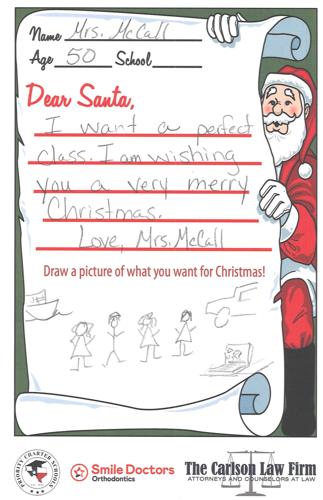 Name Mrs. McCall
Age 50 School
Dear Santa,
I want a perfect
class. I am wishing
you a very merry
Christmas.
Love, Mrs. McCall
Draw a picture of what you want for Christmas!
PRIORITY CHARTER SCHOOLS
Smile Doctors
Orthodontics
The Carlson Law Firm
ATTORNEYS AND COUNSELORS AT LAW